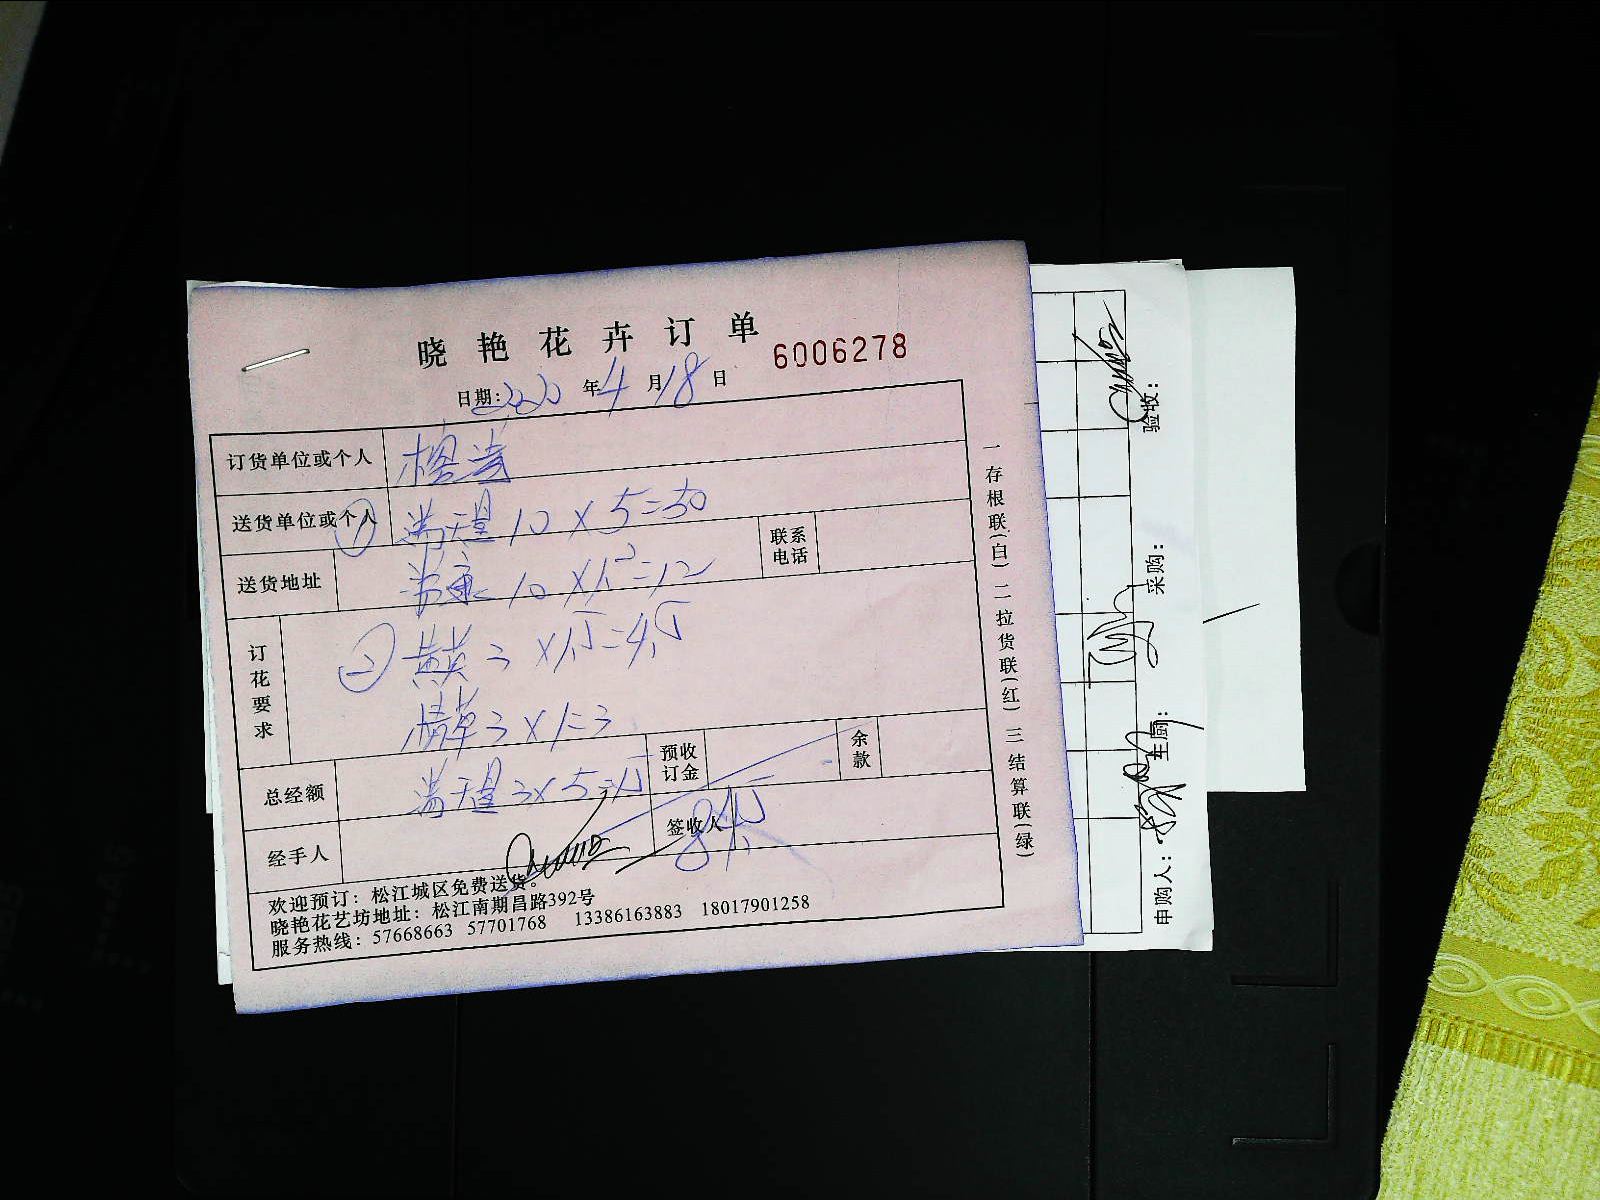 晓艳花卉订单
6006278
日期: 年4月18日
订货单位或个人
送货单位或个人 ① 满天星 10×5=50
送货地址 10×1.2=12 联系电话
订花要求 ② 黄英 3×1.5=4.5
情草 3×1=3
总经额 满天星 3×5=15 预收订金 余款
经手人 签收人 84.5
欢迎预订：松江城区免费送货。
晓艳花艺坊地址：松江南期昌路392号
服务热线：57668663 57701768 13386163883 18017901258
一存根联(白) 二拉货联(红) 三结算联(绿)
申购人：
车厨：
采购：
验收：